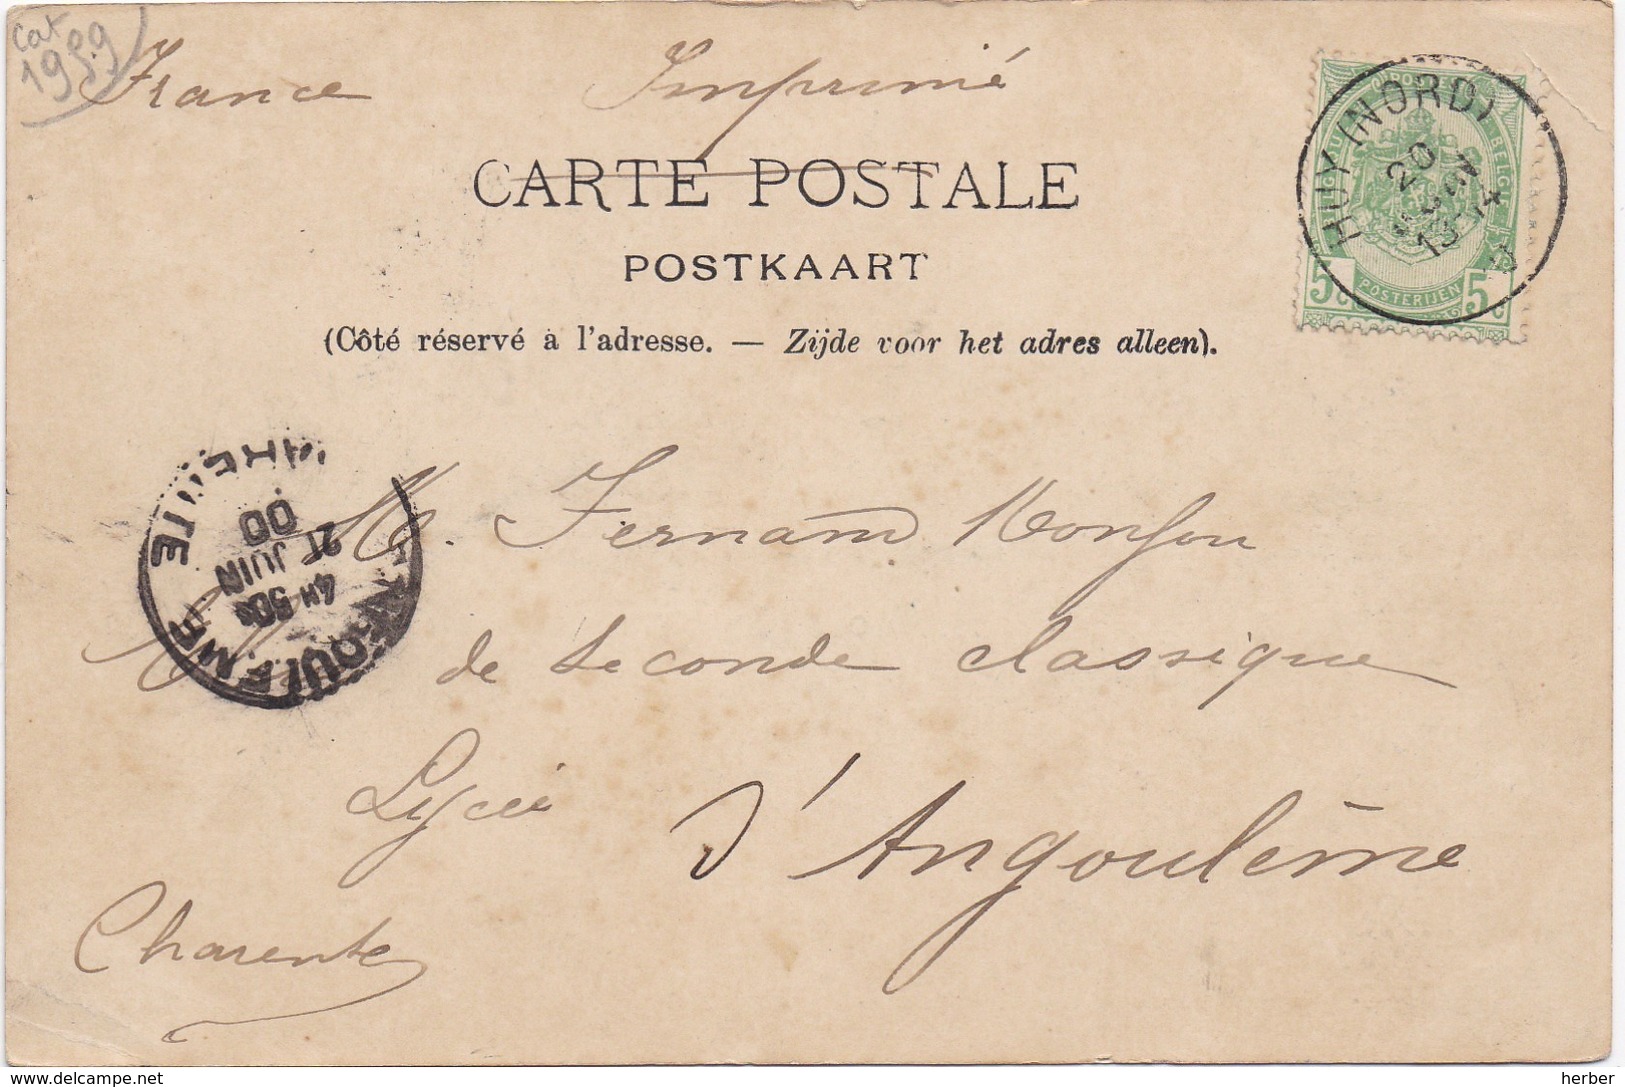 Cat
1999
France Imprimé
CARTE POSTALE
POSTKAART
(Côté réservé à l'adresse. — Zijde voor het adres alleen).
HUY (NORD)
20
JUIN
13-14
BELGIQUE
POSTERIJEN
5 5
ANGOULEME
CHARENTE
4H 50S
21 JUIN
00
M. Fernand Monfou
de Seconde classique
Lycée
d'Angoulême
Charente
delcampe.net
herber